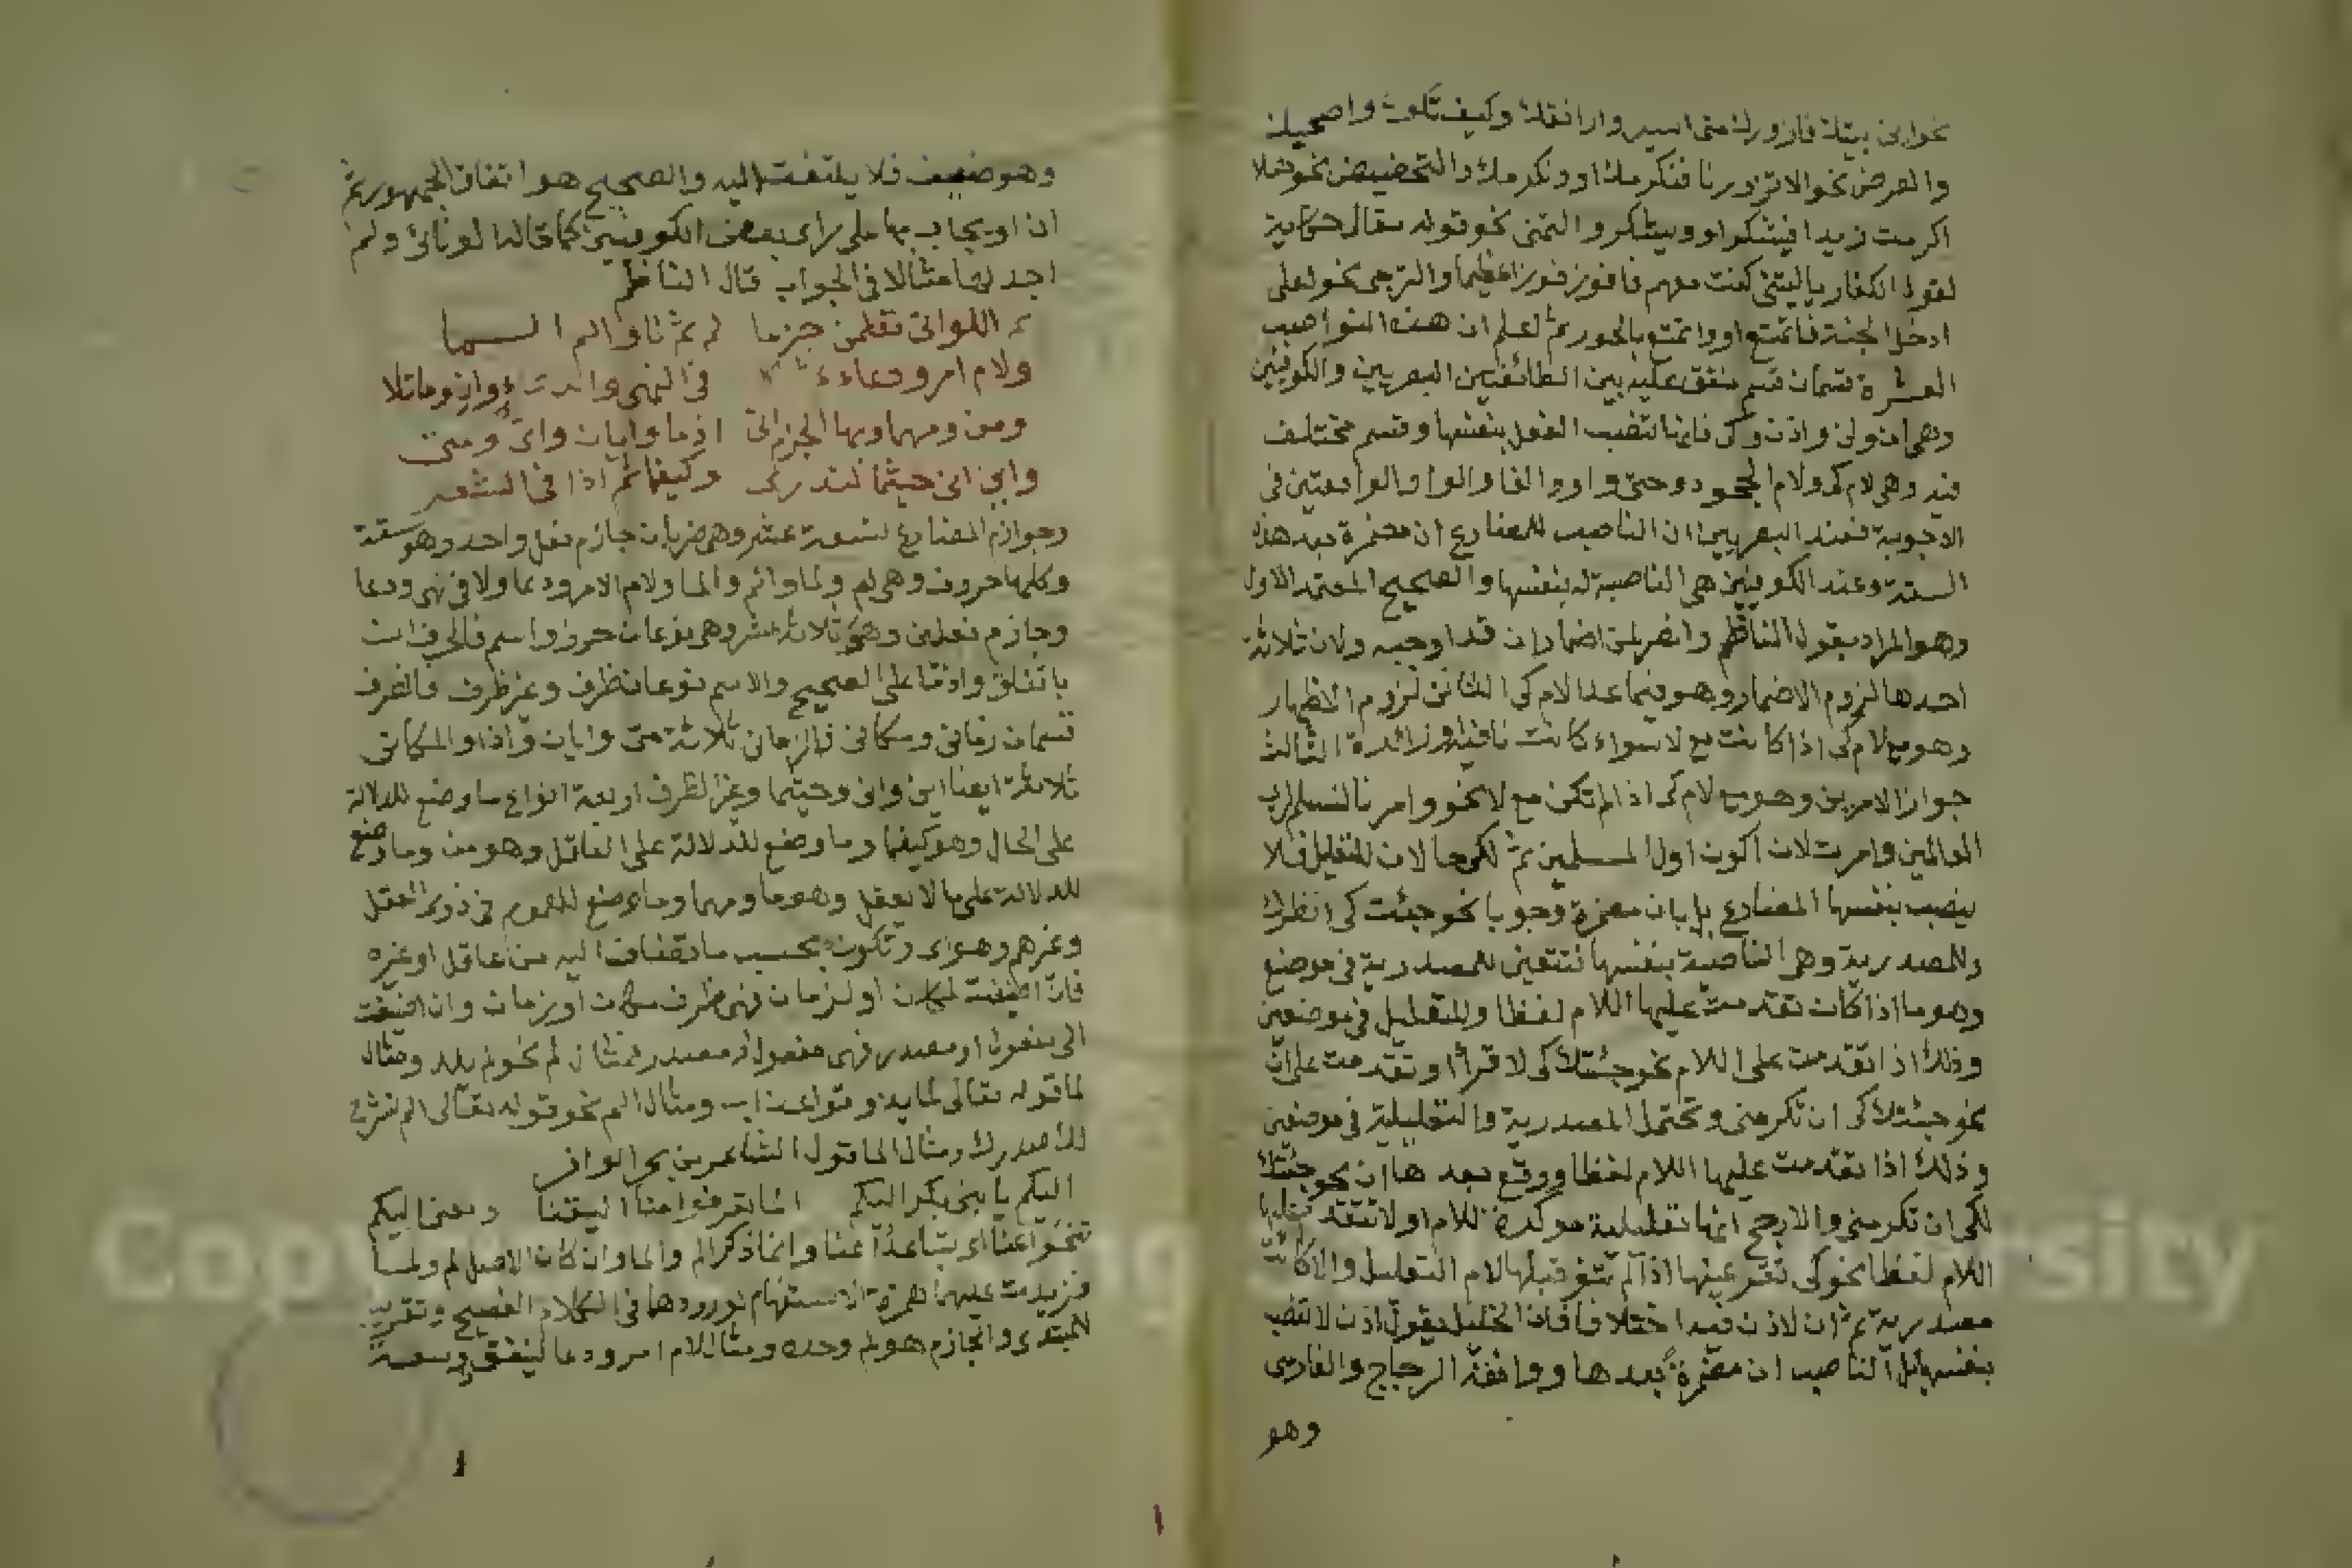 نحو اين بيتك فازورك متى اسير وارافقك وكيف تكون واصحبك
والعرض نحو الا تزورنا فنكرمك او ونكرمك والتحضيض نحو هلا
اكرمت زيدا فيشكر او ويشكر والتمنى نحو قوله تعالى حكاية
لقول الكفار ياليتنى كنت معهم فافوز فوزا عظيما والترجى نحو لعلى
ادخل الجنة فاتمتع او واتمتع بالحور ثم لعلم ان هذه النواصب
العشرة قسمان قسم متفق عليه بين الطائفتين البصريين والكوفيين
وهى ان ولن واذن وكى فانها تنصب الفعل بنفسها وقسم مختلف
فيه وهى لام كى ولام الجحود وحتى واو والفا والواو الواقعتين فى
الاجوبة فعند البصريين ان الناصب للمضارع ان مضمرة بعد هذه
الستة وعند الكوفيين هى الناصبة له بنفسها والصحيح المعتمد الاول
وهو المراد بقول الناظم وانصر لمن اضمار ان قد اوجبه ولان ثلاثة
احدها لزوم الاضمار وهو فيما عدا لام كى الثانى لزوم الاظهار
وهو مع لام كى اذا كانت مع لا سواء كانت نافية او زائدة الثالث
جواز الامرين وهو مع لام كى اذا لم تكن مع لا نحو وامرنا لنسلم لرب
العالمين وامرت لان اكون اول المسلمين ثم لكى حالان للتعليل فلا
ينصب بنفسها المضارع بل بان مضمرة وجوبا نحو جئت كى انظرك
وللمصدرية وهى الناصبة بنفسها فتتعين للمصدرية فى موضع
وهو ما اذا كان تقدمت عليها اللام لفظا وللتعليل فى موضعين
وذلك اذا تقدمت على اللام نحو جئتك كى لاقرأ او تقدمت على ان
نحو جئتك كى ان تكرمنى وتحتمل المصدرية والتعليلية فى موضعين
وذلك اذا تقدمت عليها اللام لفظا ووقع بعدها ان نحو جئتك
لكى ان تكرمنى والارجح انها تعليلية موكدة للام او لا تتقد عليها
اللام لفظا نحو كى تقر عينها اذا لم تنو قبلها لام التعليل والا كانت
مصدرية ثم ان لاذن فيه اختلافا فان الخليل يقول اذن لا تنصب
بنفسها بل الناصب ان مضمرة بعدها ووافقه الزجاج والفارسى
وهو
وهو ضعيف فلا يلتفت اليه والصحيح هو اتفاق الجمهور ثم
ان او يجاب بها على راى بعض الكوفيين كما قاله لونائى ولم
اجد لها مثالا فى الجواب قال الناظم
ثم اللواتى تعلمن جزما لم ثم لما والم السما
ولام امر ودعاء فى النهى والدعاء وان وما تلا
ومن ومهما وبها الجزم اتى اذما وايان واى ومتى
واين انى حيثما لتدرى وكيفما ثم اذا فى الشعر
وجوازم المضارع تسعة عشر وهى ضربان جازم فعل واحد وهو ستة
وكلها حروف وهى لم ولما والم والما ولام الامر ودعا ولا فى نهى ودعا
وجازم فعلين وهو ثلاثة عشر وهى نوعان حرف واسم فالحرف ان
باتفاق واذما على الصحيح والاسم نوعان ظرف وغير ظرف فالظرف
قسمان زمانى ومكانى فالزمانى ثلاثة متى وايان واذا والمكانى
ثلاثة ايضا اين وانى وحيثما وغير الظرف اربعة انواع ما وضع للدلالة
على الحال وهو كيفما وما وضع للدلالة على العاقل وهو من وما وضع
للدلالة على ما لا يعقل وهو ما ومهما وما وضع للعموم فى ذوى العقل
وغيرهم وهو اى وتكون بحسب ما تضاف اليه من عاقل او غيره
فان اضيفت لمكان او لزمان فهى ظرف مكان او زمان وان اضيفت
الى مفعول او مصدر فهى مفعول او مصدر فمثال لم نحو لم يلد ومثال
لما قوله تعالى لما يذوقوا عذاب ومثال الم نحو قوله تعالى الم نشرح
لك صدرك ومثال الما قول الشاعر من بحر الوافر
اليكم يا بنى بكر اليكم الما تعرفوا منا اليقينا ومعنى اليكم
تنحوا عنا اى تباعدا عنا وانما ذكر الم والما وان كان الاصل لم ولما
فزيدت عليهما همزة الاستفهام لورودهما فى الكلام الفصيح وتقريب
للمبتدى والجازم هو لم وحده ومثال لام امر ودعا لينفق ذو سعة